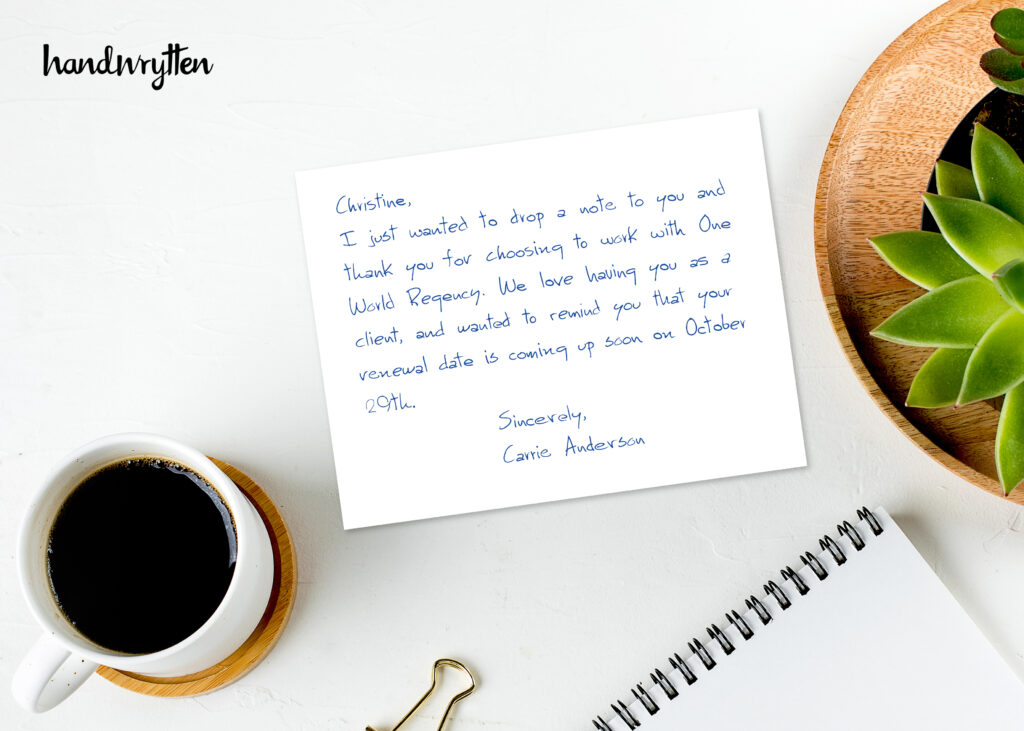 handwrytten
Christine,
I just wanted to drop a note to you and
thank you for choosing to work with One
World Regency. We love having you as a
client, and wanted to remind you that your
renewal date is coming up soon on October
29th.
Sincerely,
Carrie Anderson